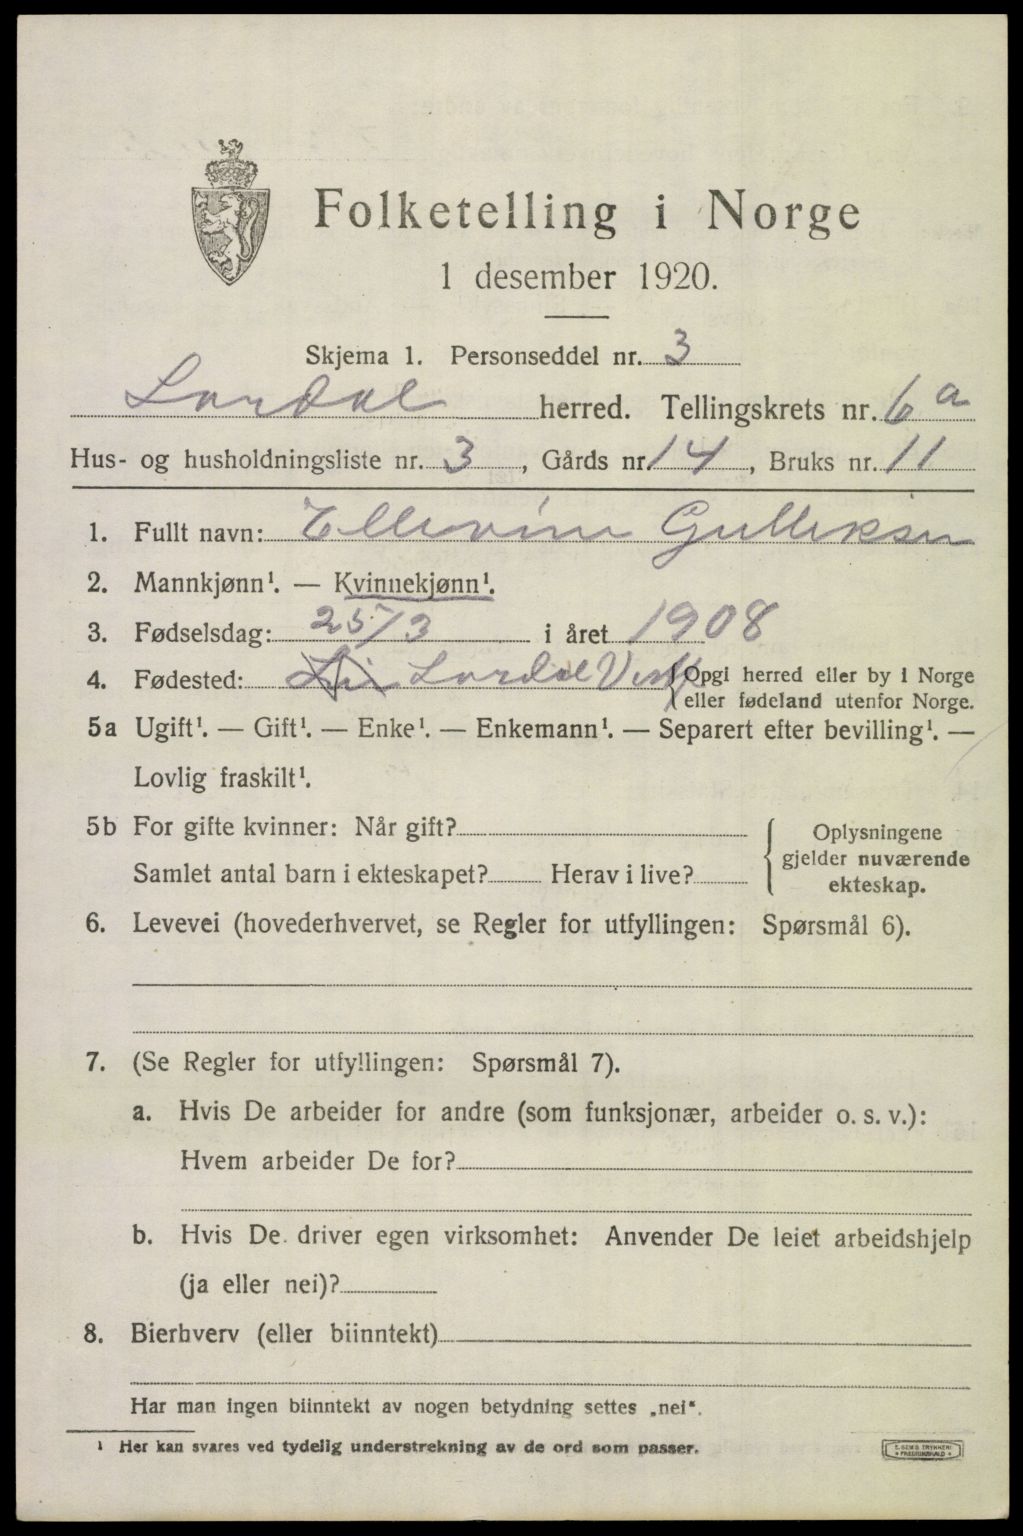 Folketelling i Norge
1 desember 1920.
Skjema 1. Personseddel nr. 3
Lardal herred. Tellingskrets nr. 6 a
Hus- og husholdningsliste nr. 3, Gårds nr. 14, Bruks nr. 11
1. Fullt navn: Ellevine Gulliksen
2. Mannkjønn¹. — Kvinnekjønn¹.
3. Fødselsdag: 25/3 i året 1908
4. Fødested: Lardal Vestf { Opgi herred eller by i Norge
eller fødeland utenfor Norge.
5a Ugift¹. — Gift¹. — Enke¹. — Enkemann¹. — Separert efter bevilling¹. —
Lovlig fraskilt¹.
5b For gifte kvinner: Når gift? { Oplysningene
gjelder nuværende
Samlet antal barn i ekteskapet? Herav i live? ekteskap.
6. Levevei (hovederhvervet, se Regler for utfyllingen: Spørsmål 6).
7. (Se Regler for utfyllingen: Spørsmål 7).
a. Hvis De arbeider for andre (som funksjonær, arbeider o. s. v.):
Hvem arbeider De for?
b. Hvis De driver egen virksomhet: Anvender De leiet arbeidshjelp
(ja eller nei)?
8. Bierhverv (eller biinntekt)
Har man ingen biinntekt av nogen betydning settes „nei“.
¹ Her kan svares ved tydelig understrekning av de ord som passer.
E. SEMS TRYKKERI
FREDRIKSHALD